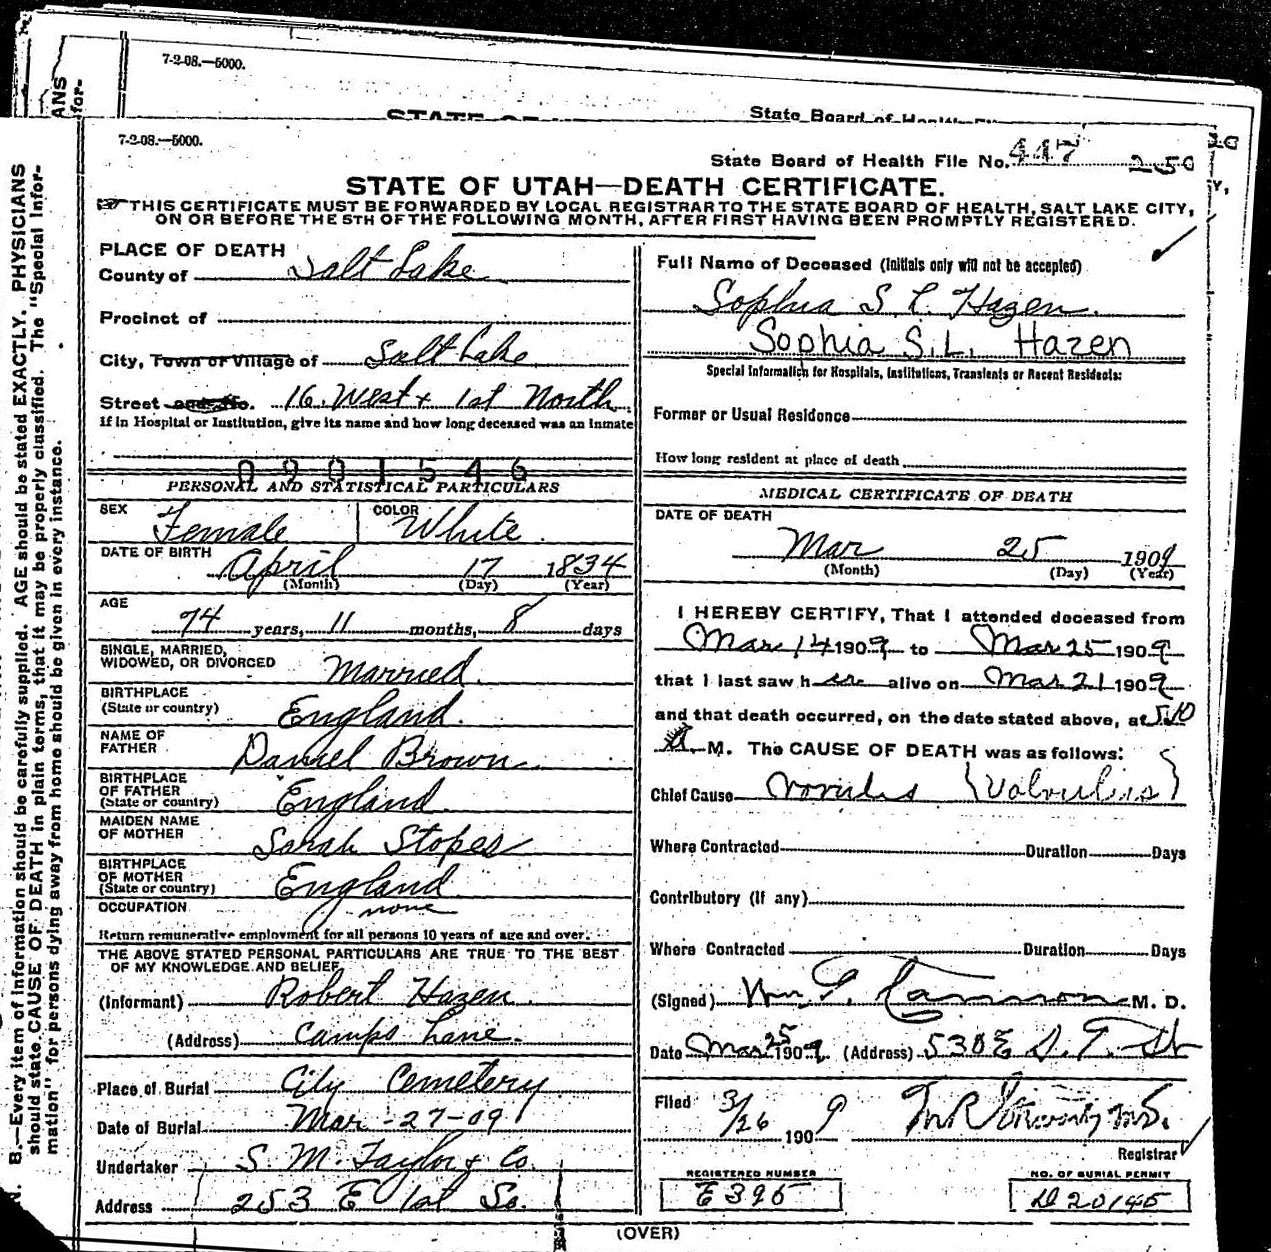 7-2-08.—5000.
STATE OF
State Board of Health
ANS
for-
7-2-08.—5000.
State Board of Health File No. 447 250
STATE OF UTAH—DEATH CERTIFICATE.
THIS CERTIFICATE MUST BE FORWARDED BY LOCAL REGISTRAR TO THE STATE BOARD OF HEALTH, SALT LAKE CITY,
ON OR BEFORE THE 5TH OF THE FOLLOWING MONTH, AFTER FIRST HAVING BEEN PROMPTLY REGISTERED.
PLACE OF DEATH
County of Salt Lake
Precinct of
City, Town or Village of Salt Lake
Street and No. 16 West + 1st North
If in Hospital or Institution, give its name and how long deceased was an inmate
0901546
PERSONAL AND STATISTICAL PARTICULARS
SEX Female COLOR White
DATE OF BIRTH April 17 1834
(Month) (Day) (Year)
AGE
74 years, 11 months, 8 days
SINGLE, MARRIED,
WIDOWED, OR DIVORCED Married
BIRTHPLACE
(State or country) England
NAME OF
FATHER Daniel Brown
BIRTHPLACE
OF FATHER
(State or country) England
MAIDEN NAME
OF MOTHER Sarah Stopes
BIRTHPLACE
OF MOTHER
(State or country) England
OCCUPATION none
Return remunerative employment for all persons 10 years of age and over.
THE ABOVE STATED PERSONAL PARTICULARS ARE TRUE TO THE BEST
OF MY KNOWLEDGE AND BELIEF
(Informant) Robert Hazen
(Address) Camps Lane
Place of Burial City Cemetery
Date of Burial Mar-27-09
Undertaker S. M. Taylor & Co.
Address 253 E 1st So.
Full Name of Deceased (Initials only will not be accepted)
Sophia S L Hazen
Sophia S.L. Hazen
Special Information for Hospitals, Institutions, Transients or Recent Residents:
Former or Usual Residence
How long resident at place of death
MEDICAL CERTIFICATE OF DEATH
DATE OF DEATH
Mar 25 1909
(Month) (Day) (Year)
I HEREBY CERTIFY, That I attended deceased from
Mar 14 1909 to Mar 25 1909
that I last saw her alive on Mar 21 1909
and that death occurred, on the date stated above, at 5.10
a M. The CAUSE OF DEATH was as follows:
Chief Cause {Volvulus}
Where Contracted Duration Days
Contributory (If any)
Where Contracted Duration Days
(Signed) Wm M. D.
Date Mar 25 1909 (Address) 530 E S. T. St
Filed 3/26 1909
Registrar
REGISTERED NUMBER
E 395
NO. OF BURIAL PERMIT
D 20145
(OVER)
N. B.—Every item of information should be carefully supplied. AGE should be stated EXACTLY. PHYSICIANS
should state CAUSE OF DEATH in plain terms, that it may be properly classified. The "Special Infor-
mation" for persons dying away from home should be given in every instance.